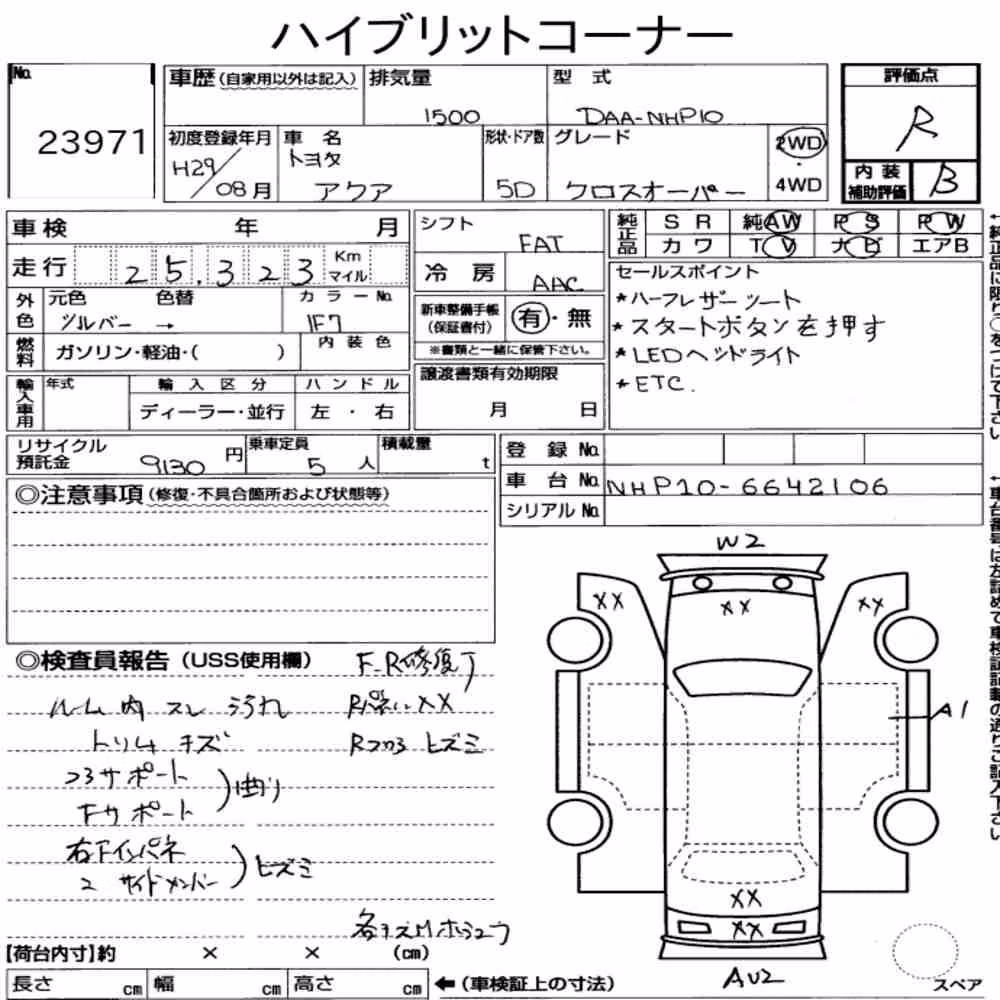 ハイブリットコーナー
No.
23971
車歴(自家用以外は記入)
排気量
1500
型 式
DAA-NHP10
評価点
R
内装補助評価
B
初度登録年月
H29/08月
車名
トヨタ
アクア
形状・ドア数
5D
グレード
クロスオーバー
2WD
・
4WD
車検 年 月
走行 25,323 Km マイル
外色
元色
シルバー
色替
→
カラーNo.
1F7
燃料
ガソリン・軽油・( )
内装色
輸入車用
年式
輸入区分
ディーラー・並行
ハンドル
左・右
シフト
FAT
冷房
AAC
新車整備手帳(保証書付)
有・無
※書類と一緒に保管下さい。
譲渡書類有効期限
月 日
純正品
SR 純AW PS PW
カワ TV ナビ エアB
セールスポイント
*ハーフレザーシート
*スタートボタンを押す
*LEDヘッドライト
*ETC.
リサイクル預託金
9130円
乗車定員
5人
積載量
t
登録No.
車台No. NHP10-6642106
シリアルNo.
◎注意事項(修復・不具合箇所および状態等)
◎検査員報告(USS使用欄)
F-R修復了
ルーム内スレ汚れ
トリムキズ
コアサポート
Fサポート
)曲り
右Fインパネ
2 サイドメンバー
)ヒズミ
Rパネル××
Rフロア ヒズミ
W2
××
××
××
A1
××
××
AU2
スペア
【荷台内寸】約 × × (cm)
長さ cm 幅 cm 高さ cm ←(車検証上の寸法)
←純正品に限り○をつけて下さい